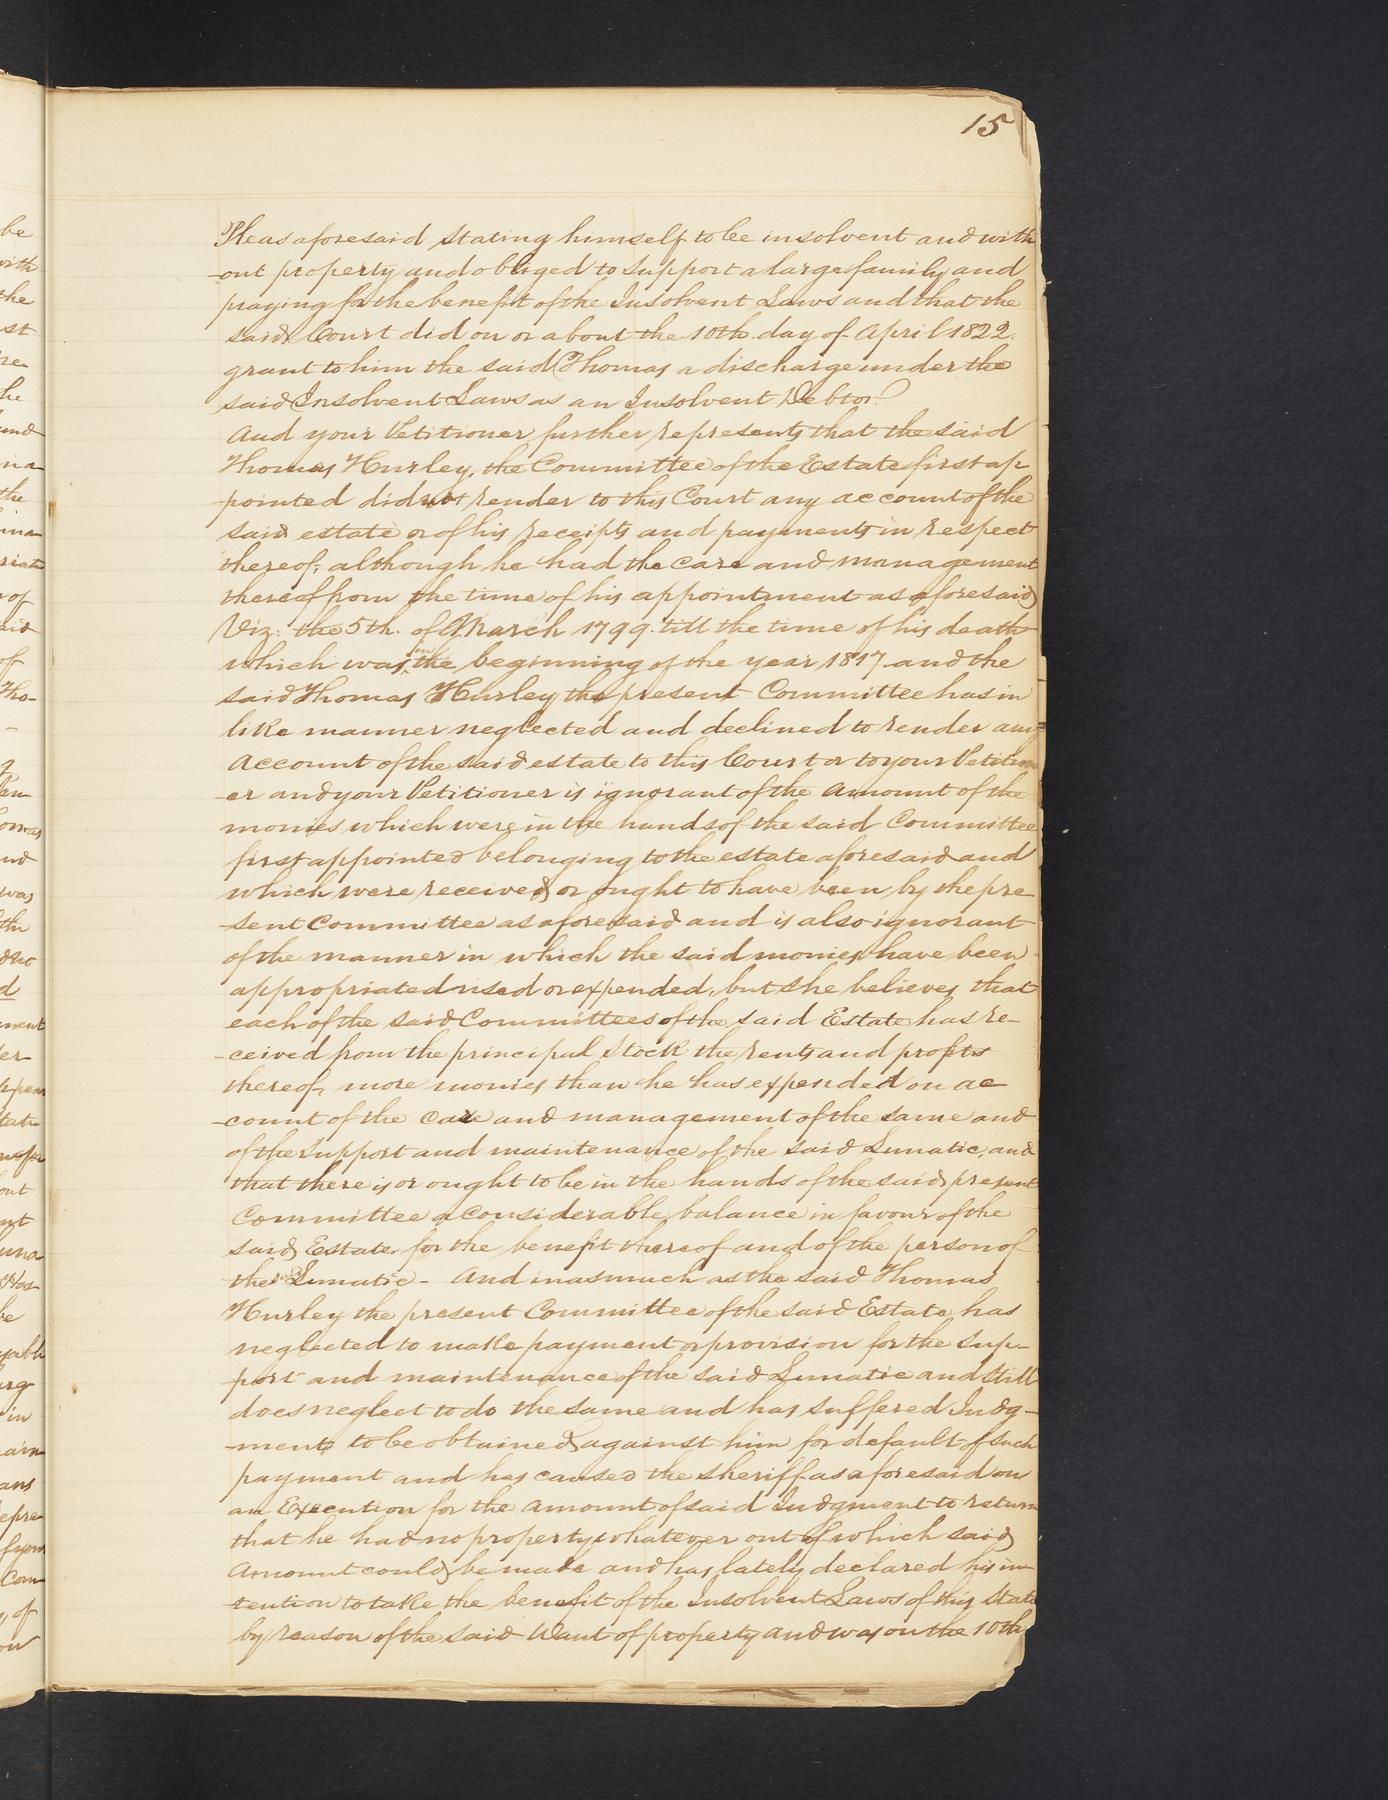 15
Pleas aforesaid stating himself to be insolvent and with
-out property and obliged to support a large family and
praying for the benefit of the Insolvent Laws and that the
said Court did on or about the 10th. day of April 1822.
grant to him the said Thomas a discharge under the
said Insolvent Laws as an Insolvent Debtor.
And your Petitioner further represents that the said
Thomas Hurley, the Committee of the Estate first ap
-pointed did not render to this Court any account of the
said estate or of his receipts and payments in respect
thereof; although he had the care and management
thereof from the time of his appointment as aforesaid
Viz: the 5th. of March 1799. till the time of his death
which was in the beginning of the year 1817. and the
said Thomas Hurley the present Committee has in
like manner neglected and declined to render any
account of the said estate to this Court or to your Petition
-er and your Petitioner is ignorant of the Amount of the
monies which were in the hands of the said Committee
first appointed belonging to the estate aforesaid and
which were received or ought to have been by the pre
-sent Committee as aforesaid and is also ignorant
of the manner in which the said monies have been
appropriated used or expended, but she believes that
each of the said Committees of the said Estate has re-
-ceived from the principal Stock the rents and profits
thereof, more monies than he has expended on ac
-count of the care and management of the same and
of the support and maintenance of the said Lunatic, and
that there is or ought to be in the hands of the said present
Committee a Considerable balance in favour of the
said Estate for the benefit thereof and of the person of
the sd Lunatic - And inasmuch as the said Thomas
Hurley the present Committee of the said Estate has
neglected to make payment or provision for the sup-
port and maintenance of the said Lunatic and still
does neglect to do the same and has suffered Judg-
-ments to be obtained against him for default of such
payment and has caused the Sheriff as aforesaid on
an Execution for the amount of said Judgment to return
that he had no property whatever out of which said
Amount could be made and has lately declared his in
tention to take the benefit of the Insolvent Laws of this State
by reason of the said Want of property and was on the 10th